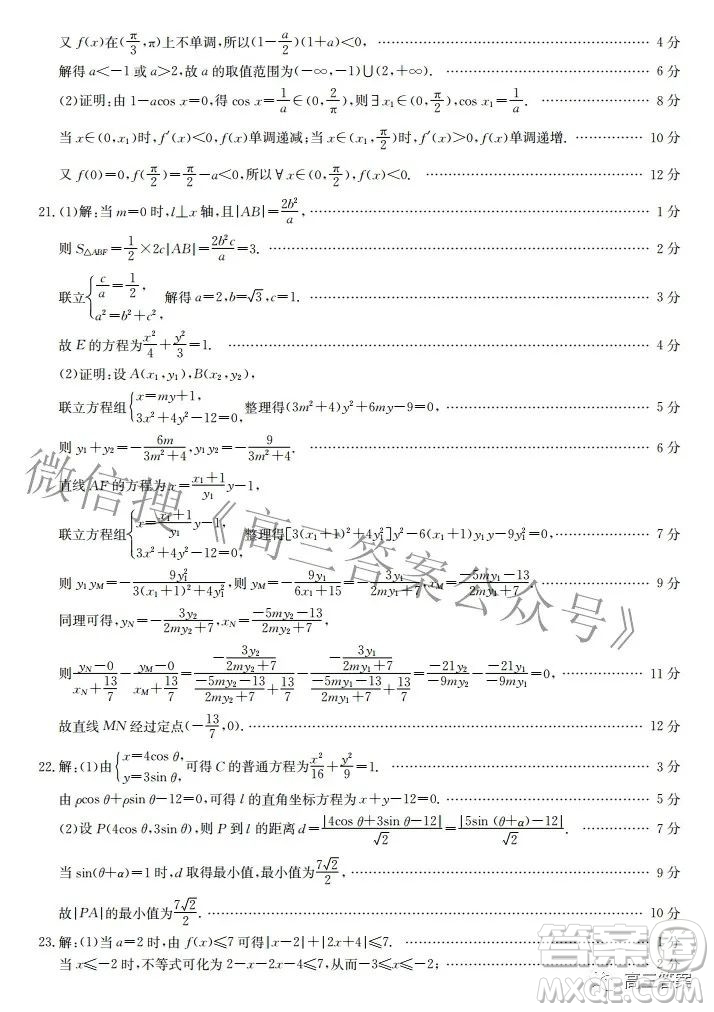 又 f(x)在(π/3,π)上不单调,所以(1-a/2)(1+a)<0, …… 4 分
解得 a<-1 或 a>2,故 a 的取值范围为(-∞,-1)∪(2,+∞). …… 6 分
(2)证明:由 1-acos x=0,得 cos x=1/a∈(0,π/2),则∃x₁∈(0,π/2),cos x₁=1/a. …… 8 分
当 x∈(0,x₁)时,f′(x)<0,f(x)单调递减;当 x∈(x₁,π/2)时,f′(x)>0,f(x)单调递增. …… 10 分
又 f(0)=0,f(π/2)=π/2-a<0,所以∀x∈(0,π/2),f(x)<0. …… 12 分
21.(1)解:当 m=0 时,l⊥x 轴,且|AB|=2b²/a, …… 1 分
则 S△ABF=1/2×2c|AB|=2b²c/a=3. …… 2 分
联立{c/a=1/2, a²=b²+c², 解得 a=2,b=√3,c=1. …… 3 分
故 E 的方程为x²/4+y²/3=1. …… 4 分
(2)证明:设 A(x₁,y₁),B(x₂,y₂),
联立方程组{x=my+1, 3x²+4y²-12=0, 整理得(3m²+4)y²+6my-9=0, …… 5 分
则 y₁+y₂=-6m/(3m²+4),y₁y₂=-9/(3m²+4). …… 6 分
直线 AF 的方程为 x=(x₁+1)/y₁ y-1,
联立方程组{x=(x₁+1)/y₁ y-1, 3x²+4y²-12=0, 整理得[3(x₁+1)²+4y₁²]y²-6(x₁+1)y₁y-9y₁²=0, …… 7 分
则 y₁yM=-9y₁²/(3(x₁+1)²+4y₁²),则 yM=-9y₁/(6x₁+15)=-3y₁/(2my₁+7),xM=(-5my₁-13)/(2my₁+7). …… 9 分
同理可得,yN=-3y₂/(2my₂+7),xN=(-5my₂-13)/(2my₂+7),
则(yN-0)/(xN+13/7)-(yM-0)/(xM+13/7)=(-3y₂/(2my₂+7))/((-5my₂-13)/(2my₂+7)+13/7)-(-3y₁/(2my₁+7))/((-5my₁-13)/(2my₁+7)+13/7)=-21y₂/-9my₂--21y₁/-9my₁=0, …… 11 分
故直线 MN 经过定点(-13/7,0). …… 12 分
22.解:(1)由{x=4cos θ, y=3sin θ, 可得 C 的普通方程为x²/16+y²/9=1. …… 3 分
由 ρcos θ+ρsin θ-12=0,可得 l 的直角坐标方程为 x+y-12=0. …… 5 分
(2)设 P(4cos θ,3sin θ),则 P 到 l 的距离 d=|4cos θ+3sin θ-12|/√2=|5sin (θ+α)-12|/√2. …… 7 分
当 sin(θ+α)=1 时,d 取得最小值,最小值为7√2/2, …… 9 分
故|PA|的最小值为7√2/2. …… 10 分
23.解:(1)当 a=2 时,由 f(x)≤7 可得|x-2|+|2x+4|≤7. …… 1 分
当 x≤-2 时,不等式可化为 2-x-2x-4≤7,从而-3≤x≤-2; …… 2 分
微信搜《高三答案公众号》
答案圈
高三答案